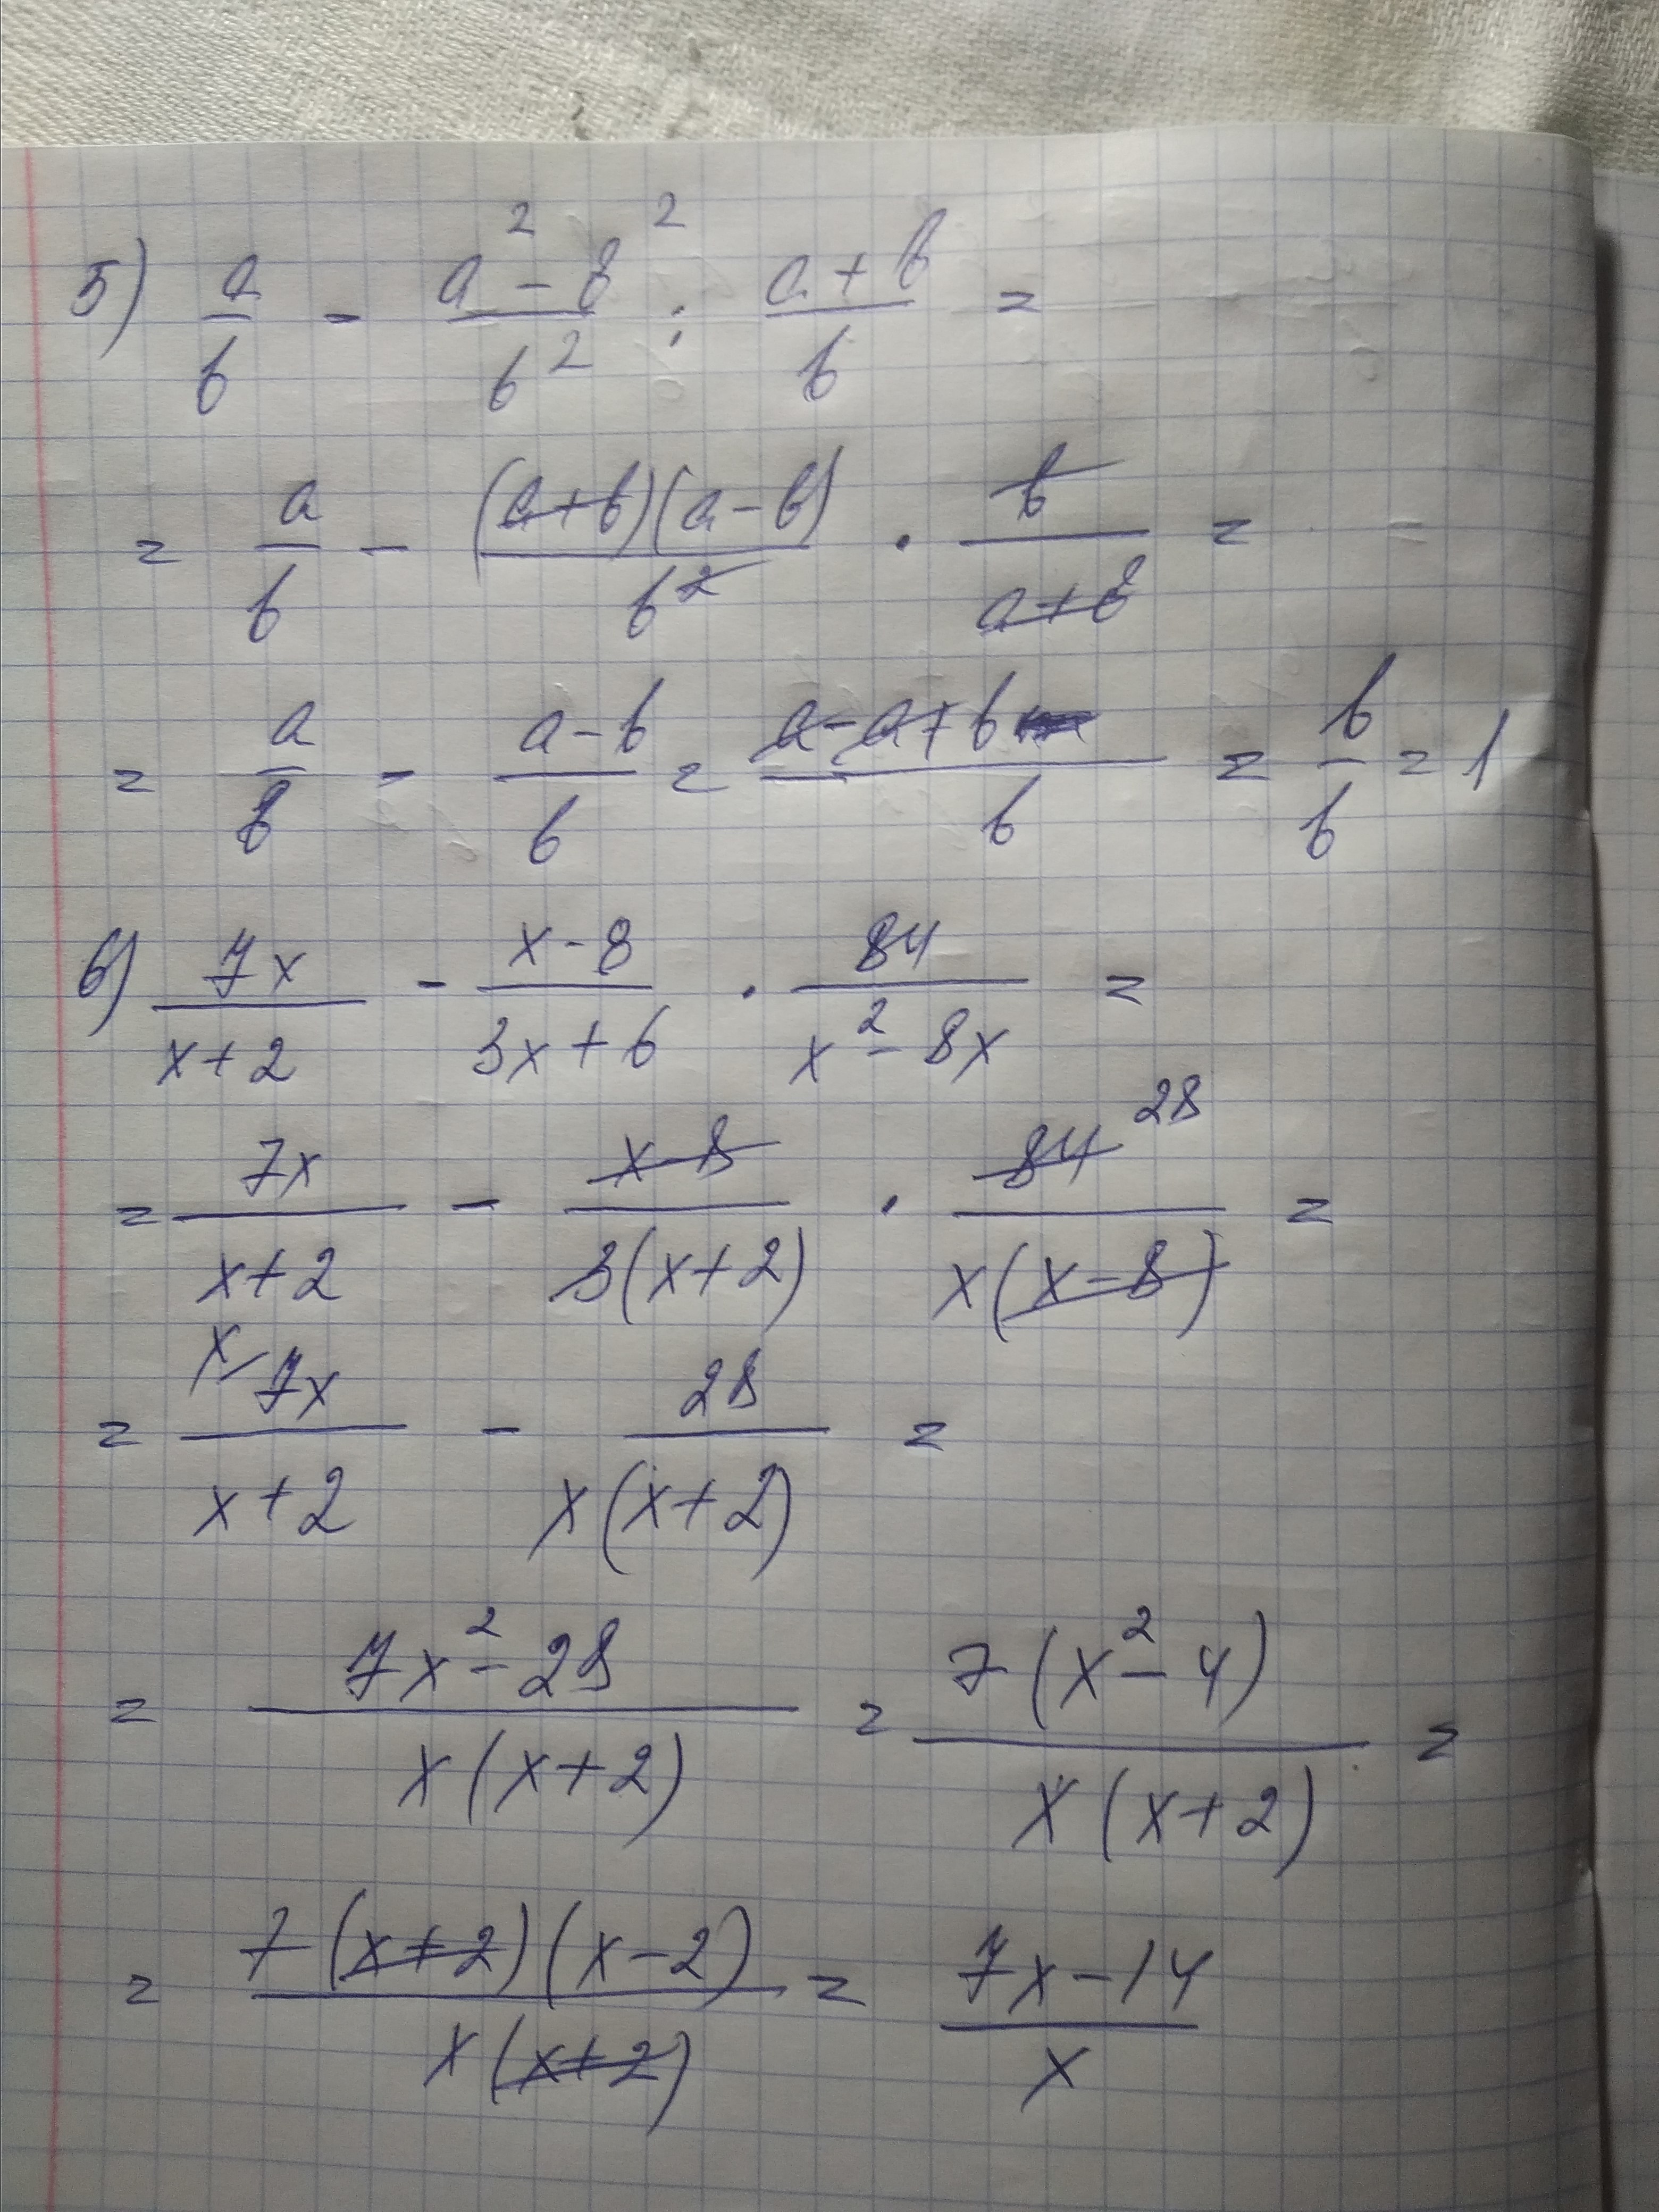 5) a/b - (a² - b²)/b² : (a + b)/b =
= a/b - (a+b)(a-b)/b² · b/(a+b) =
= a/b - (a-b)/b = (a-a+b)/b = b/b = 1
6) 7x/(x+2) - (x-8)/(3x+6) · 84/(x²-8x) =
= 7x/(x+2) - (x-8)/(3(x+2)) · 84 28/(x(x-8)) =
= x/ 7x/(x+2) - 28/(x(x+2)) =
= (7x²-28)/(x(x+2)) = 7(x²-4)/(x(x+2)) =
= 7(x+2)(x-2)/(x(x+2)) = (7x-14)/x